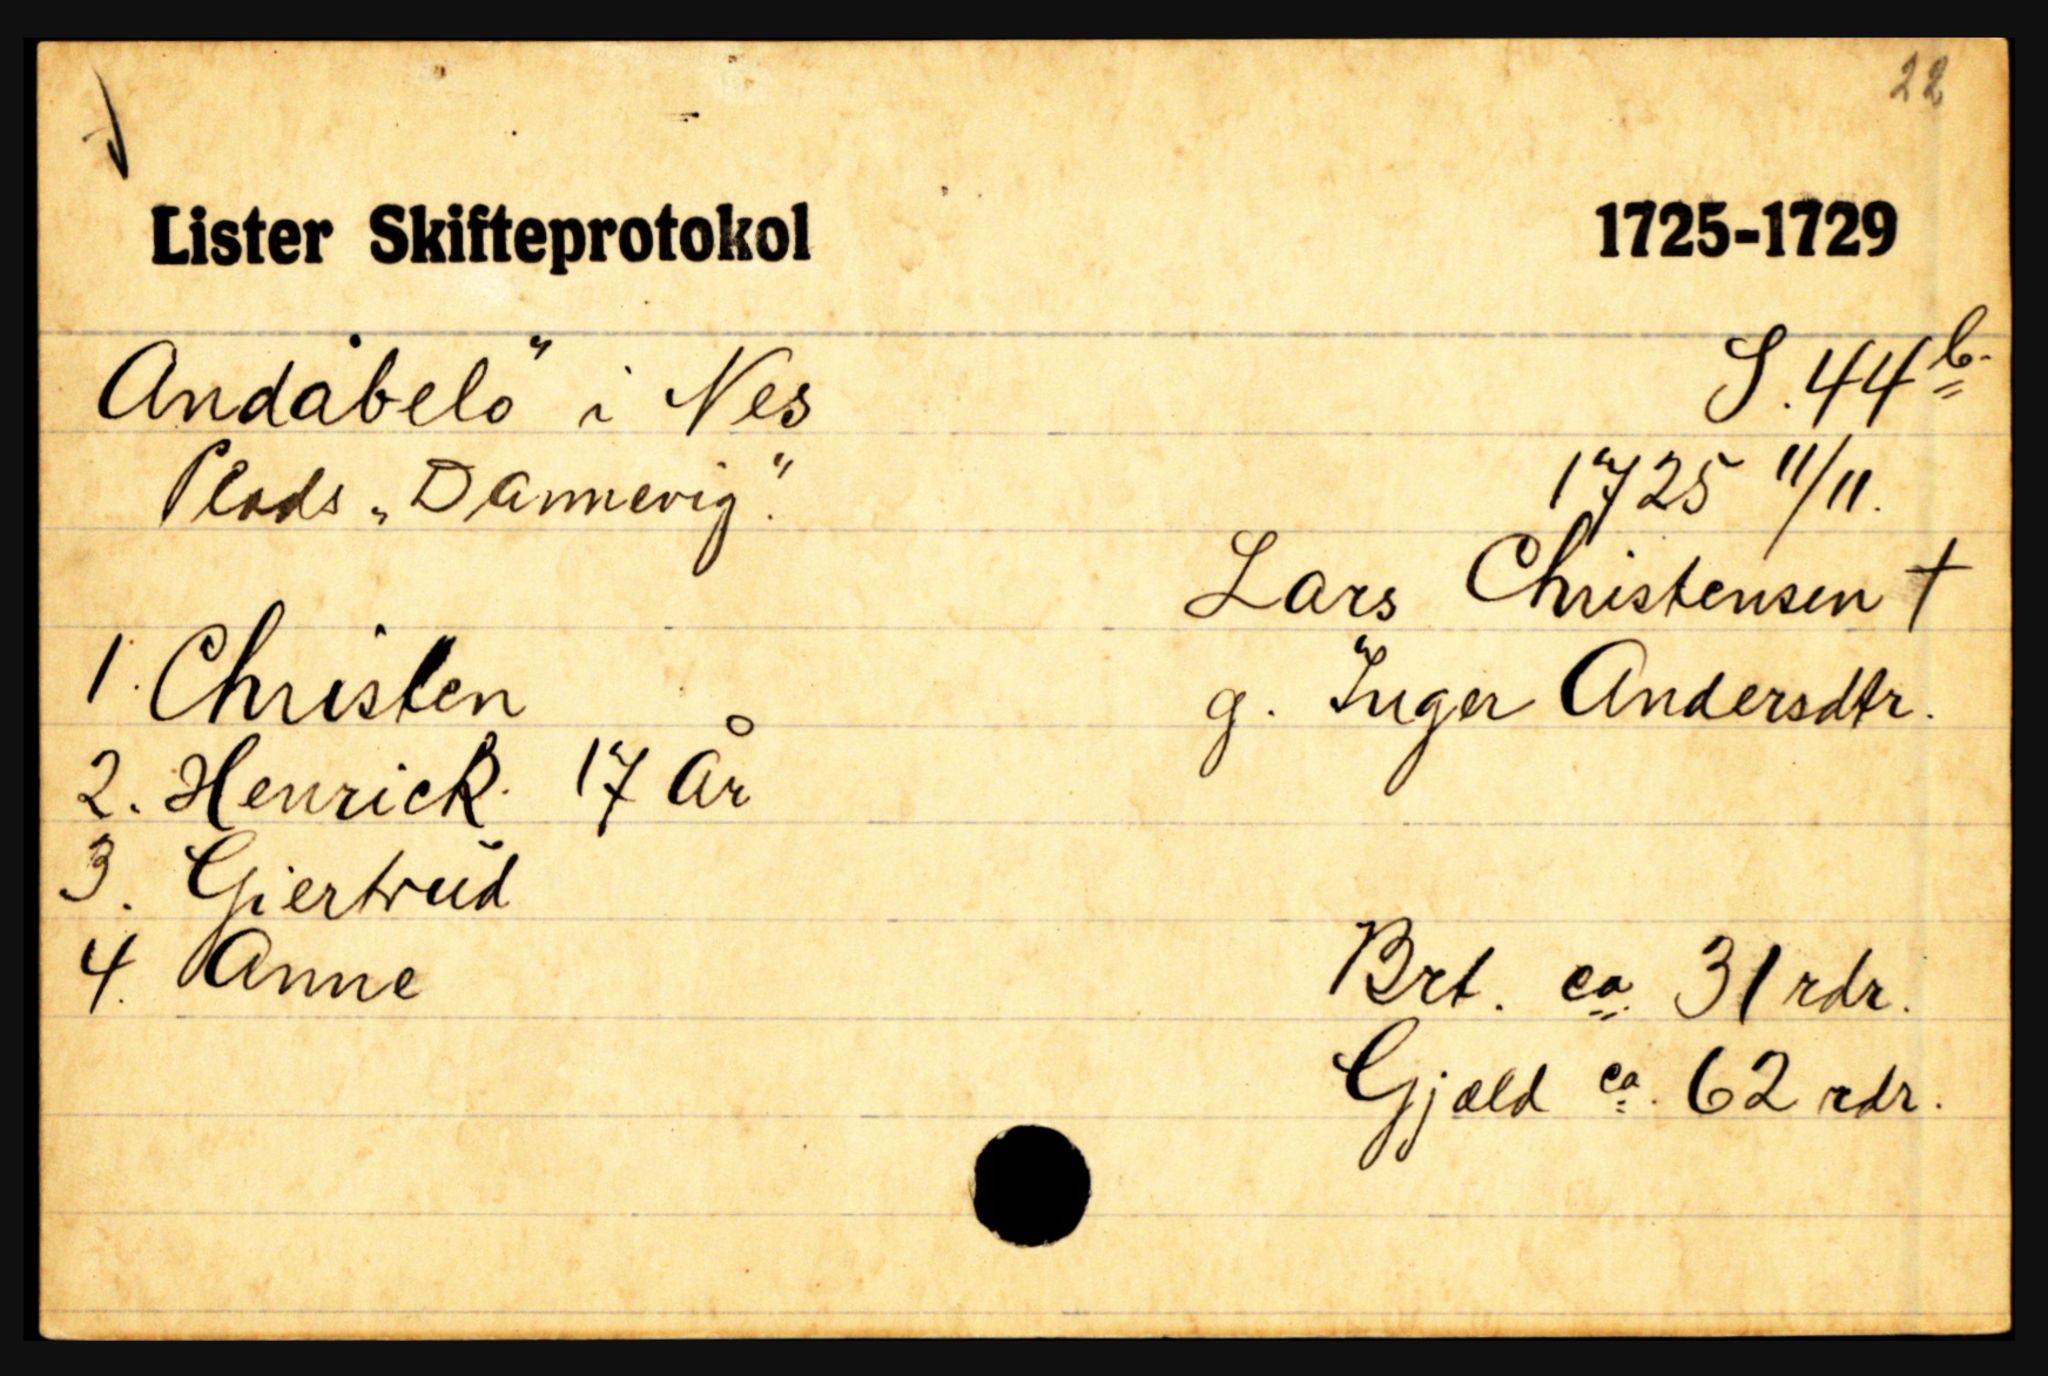 22
Lister Skifteprotokol 1725-1729
Andåbelö i Nes S. 44 b.
Plads „Dannevig".
1725 11/11.
Lars Christensen †
g. Inger Andersdtr.
1. Christen
2. Henrick. 17 År
3. Giertrud
4. Anne
Brt. ca. 31 rdr.
Gjæld ca. 62 rdr.